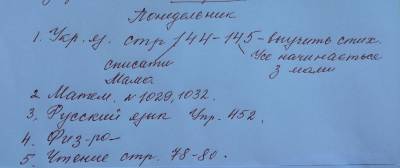 Понедельник
1. Укр. яз. стр 144-145 - выучить стих.
списати Усе начинається
Мамо з мами
2 Матем. №1029, 1032.
3. Русский язык Упр. 452.
4. Физ-ра
5. Чтение стр. 78-80.